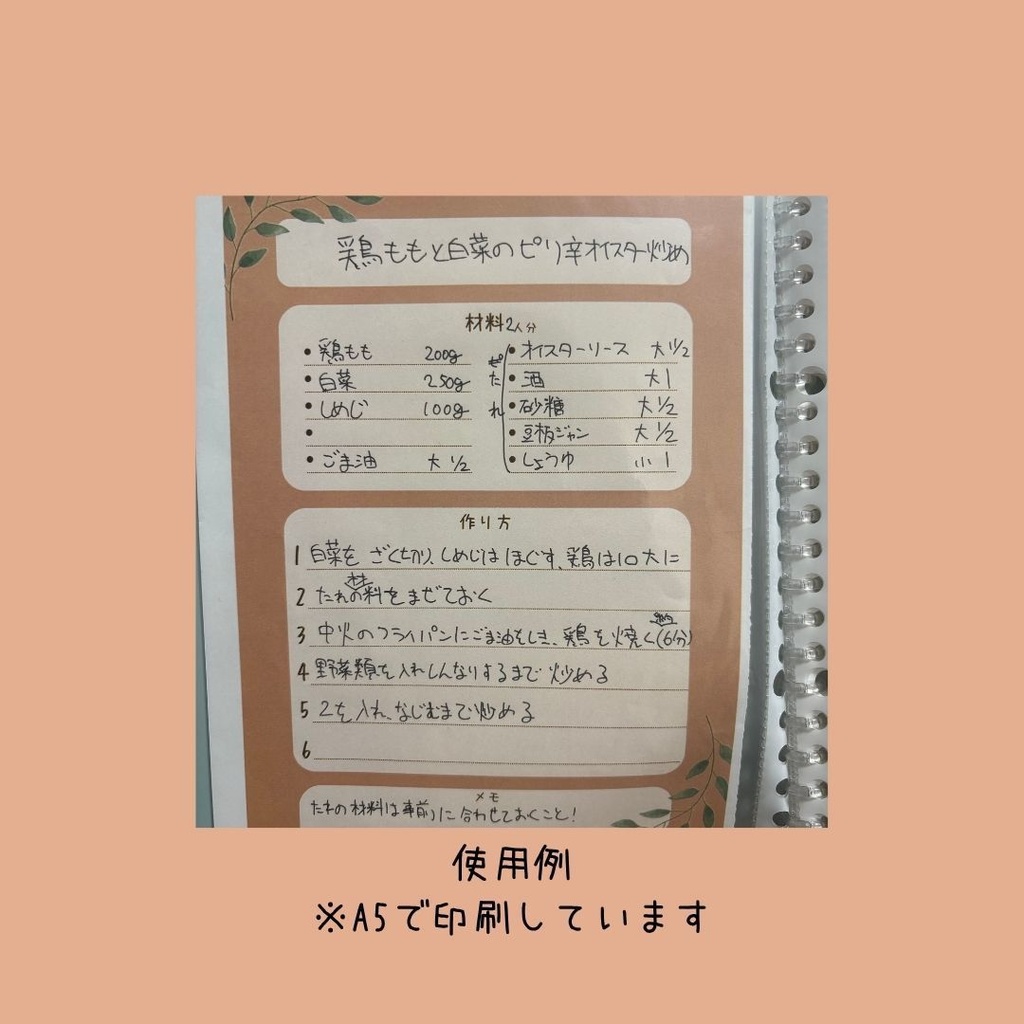 鶏ももと白菜のピリ辛オイスター炒め
材料2人分
・鶏もも 200g
・白菜 250g
・しめじ 100g
・
・ごま油 大1/2
たれ
・オイスターソース 大1 1/2
・酒 大1
・砂糖 大1/2
・豆板ジャン 大1/2
・しょうゆ 小1
作り方
1 白菜を ざく切り、しめじは ほぐす、鶏は10大に
2 たれの材料をまぜておく
3 中火のフライパンにごま油をしき、鶏を焼く(約6分)
4 野菜類を入れしんなりするまで炒める
5 2を入れ、なじむまで炒める
6
メモ
たれの材料は事前に合わせておくこと!
使用例
※A5で印刷しています